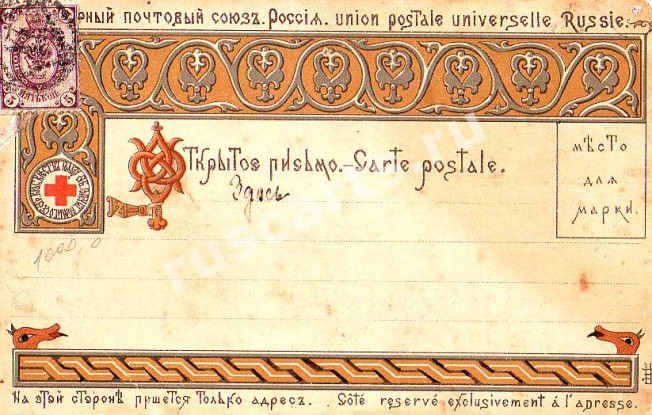 рный почтовый союзъ. Россія. union postale universelle Russie.
Открытое письмо.-Carte postale.
Здѣсь
мѣсто
для
марки.
1000,0
ruscarts.ru
На этой сторонѣ пишется только адресъ. Côté reservé exclusivement á l'apresse.